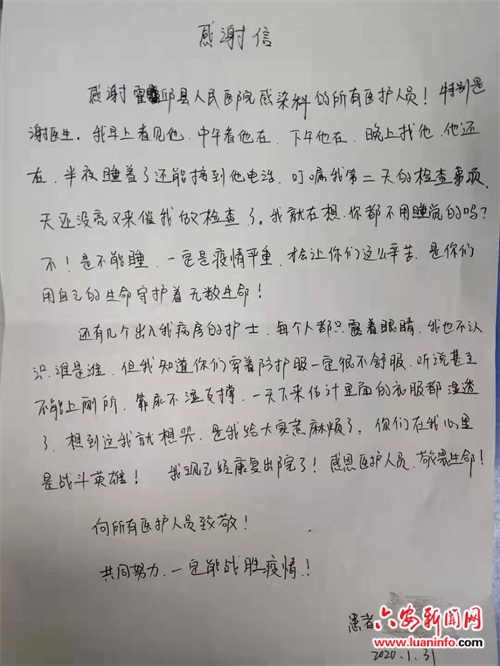 感谢信
感谢霍邱县人民医院感染科的所有医护人员！特别是
谢医生。我早上看见他，中午看他在，下午他在，晚上找他，他还
在，半夜睡着了还能接到他电话，叮嘱我第二天的检查事项，
天还没亮又来催我做检查了。我就在想，你都不用睡觉的吗？
不！是不能睡，一定是疫情严重，才会让你们这么辛苦，是你们
用自己的生命守护着无数生命！
还有几个出入我病房的护士，每个人都只露着眼睛，我也不认
识谁是谁，但我知道你们穿着防护服一定很不舒服，听说甚至
不能上厕所，靠尿不湿支撑，一天下来估计里面的衣服都湿透
了，想到这我就想哭，是我给大家惹麻烦了，你们在我心里
是战斗英雄！ 我现已经康复出院了！感恩医护人员，敬畏生命！
向所有医护人员致敬！
共同努力，一定能战胜疫情！
患者
2020.1.31
六安新闻网
www.luaninfo.com